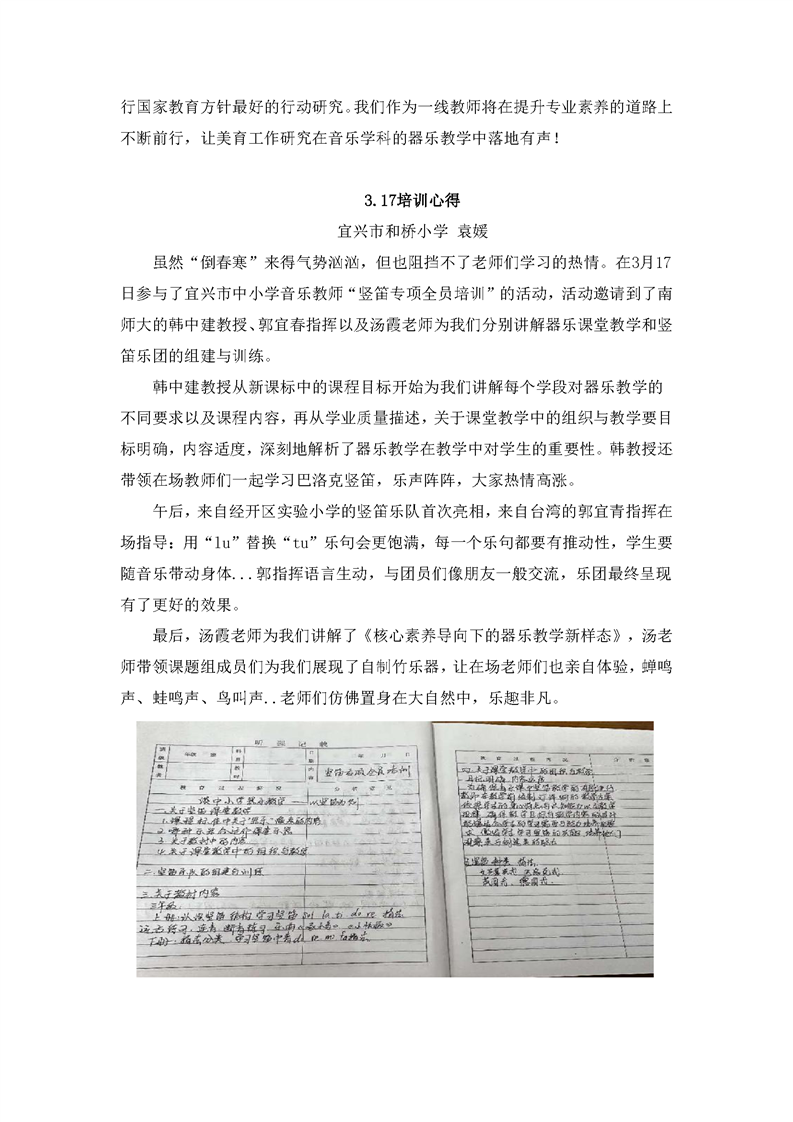 行国家教育方针最好的行动研究。我们作为一线教师将在提升专业素养的道路上
不断前行，让美育工作研究在音乐学科的器乐教学中落地有声！
3.17培训心得
宜兴市和桥小学 袁媛
虽然“倒春寒”来得气势汹汹，但也阻挡不了老师们学习的热情。在3月17
日参与了宜兴市中小学音乐教师“竖笛专项全员培训”的活动，活动邀请到了南
师大的韩中建教授、郭宜春指挥以及汤霞老师为我们分别讲解器乐课堂教学和竖
笛乐团的组建与训练。
韩中建教授从新课标中的课程目标开始为我们讲解每个学段对器乐教学的
不同要求以及课程内容，再从学业质量描述，关于课堂教学中的组织与教学要目
标明确，内容适度，深刻地解析了器乐教学在教学中对学生的重要性。韩教授还
带领在场教师们一起学习巴洛克竖笛，乐声阵阵，大家热情高涨。
午后，来自经开区实验小学的竖笛乐队首次亮相，来自台湾的郭宜青指挥在
场指导：用“lu”替换“tu”乐句会更饱满，每一个乐句都要有推动性，学生要
随音乐带动身体...郭指挥语言生动，与团员们像朋友一般交流，乐团最终呈现
有了更好的效果。
最后，汤霞老师为我们讲解了《核心素养导向下的器乐教学新样态》，汤老
师带领课题组成员们为我们展现了自制竹乐器，让在场老师们也亲自体验，蝉鸣
声、蛙鸣声、鸟叫声..老师们仿佛置身在大自然中，乐趣非凡。
听 课 记 载
一.关于竖笛课堂教学
3. 关于教材的内容
4. 关于课堂教学中的组织与教学
二.竖笛乐队的组建与训练
三.关于教材内容
三年级: